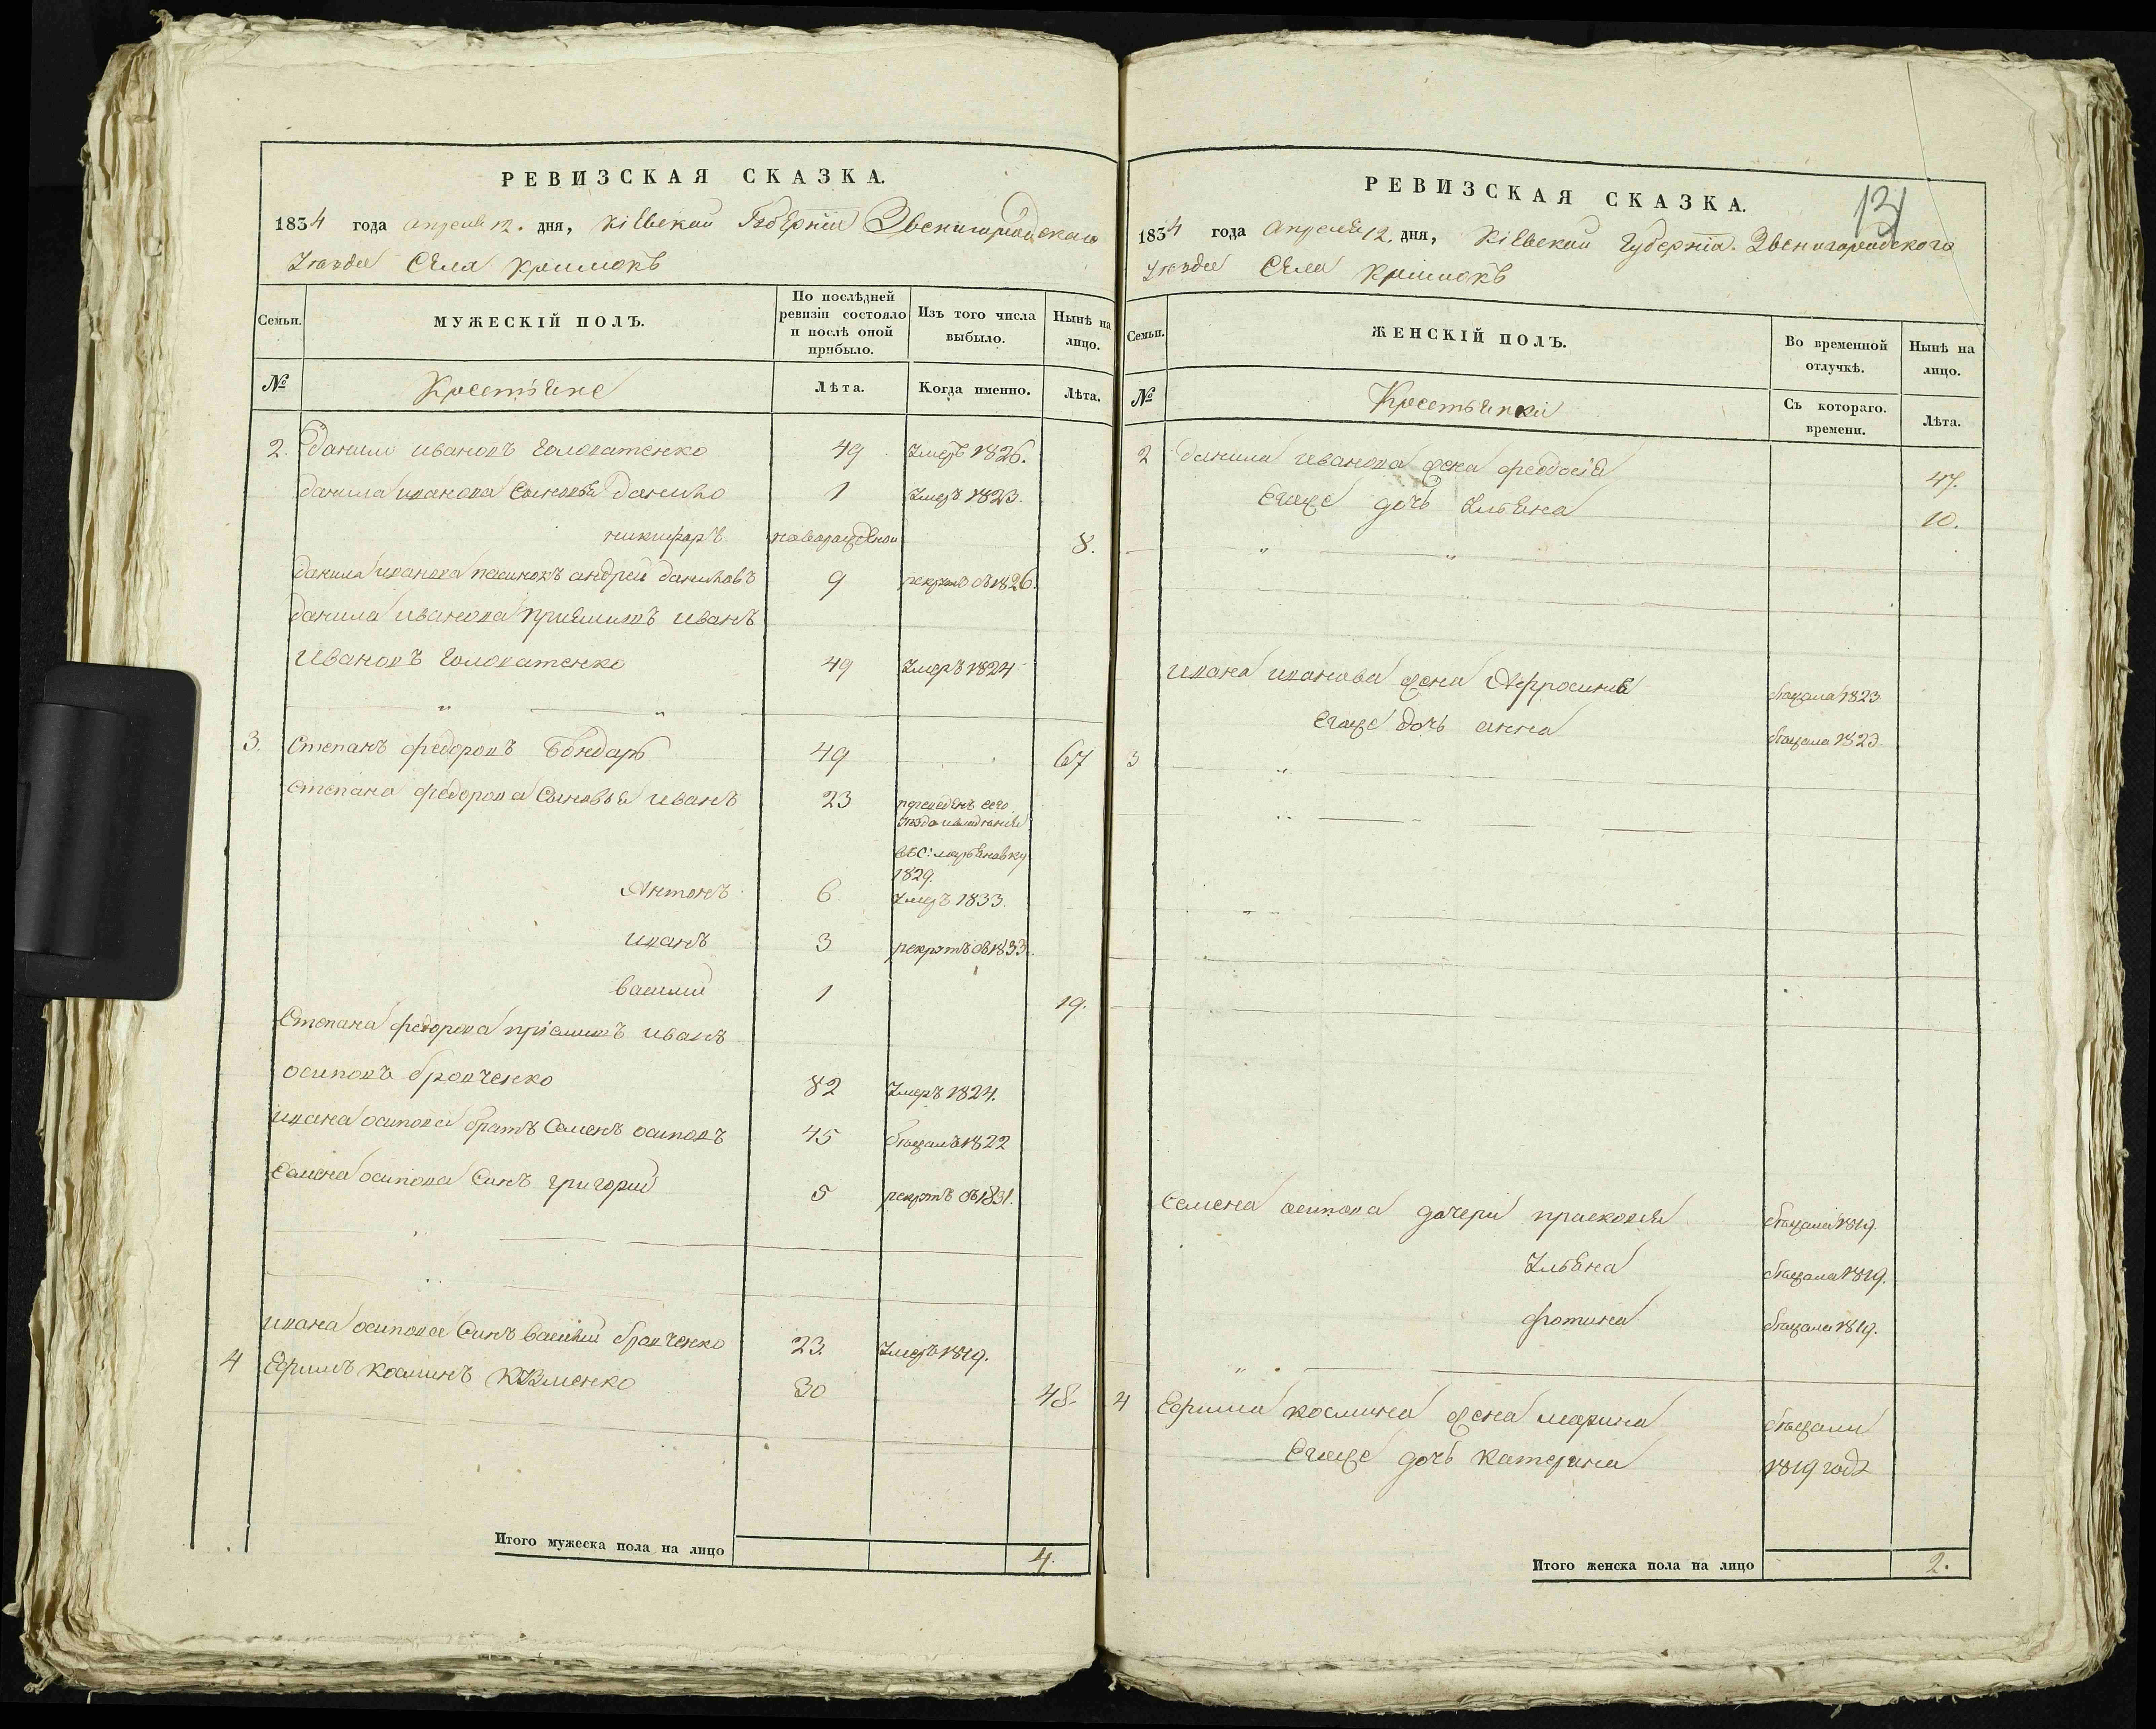 РЕВИЗСКАЯ СКАЗКА.
1834 года апреля 12. дня, Кіевской Губерніи Звенигородского
Уезда Села
Семьи. МУЖЕСКІЙ ПОЛЪ. По послѣдней ревизіи состояло и послѣ оной прибыло. Изъ того числа выбыло. Нынѣ на лицо.
№ Крестьяне Лѣта. Когда именно. Лѣта.
2. Данило Ивановъ 49 Умеръ 1826.
Данила Иванова Сыновья Данило 1 Умеръ 1823.
никифоръ новорожденной 8.
Данила Иванова пасинокъ андрей даниловъ 9 рекрутъ въ 1826.
Данила Иванова приемышъ Иванъ
Ивановъ 49 Умеръ 1824
3. Степанъ федоровъ Бондарь 49 67
Степана федорова Сыновья Иванъ 23 переведенъ сего
уезда
1829.
Антонъ 6 Умеръ 1833.
иванъ 3 рекрутъ въ 1833.
василий 1 19.
Степана федорова приемышъ иванъ
осиповъ бровченко 82 Умеръ 1824.
ивана осипова братъ Семенъ осиповъ 45 бежалъ 1822
Семена осипова Синъ григорий 5 рекрутъ въ 1831.
ивана осипова Синъ василий бровченко 23. Умеръ 1819.
4 Ефимъ косминъ 30 48.
Итого мужеска пола на лицо 4.
РЕВИЗСКАЯ СКАЗКА.
1834 года апреля 12. дня, Кіевской Губерніи Звенигородского
Уезда Села
Семьи. ЖЕНСКІЙ ПОЛЪ. Во временной отлучкѣ. Нынѣ на лицо.
№ Крестьянки Съ котораго. времени. Лѣта.
2 Данила Иванова жена феодосія 47.
Егоже дочь Ульяна 10.
ивана иванова жена Афросинія бежала 1823
Егоже дочь анна бежала 1823.
3
Семена осипова дочери прасковія бежала 1819.
Ульяна бежала 1819.
фотина бежала 1819.
4 Ефима космина жена марина бежали
Егоже дочь катерина 1819 годa
Итого женска пола на лицо 2.